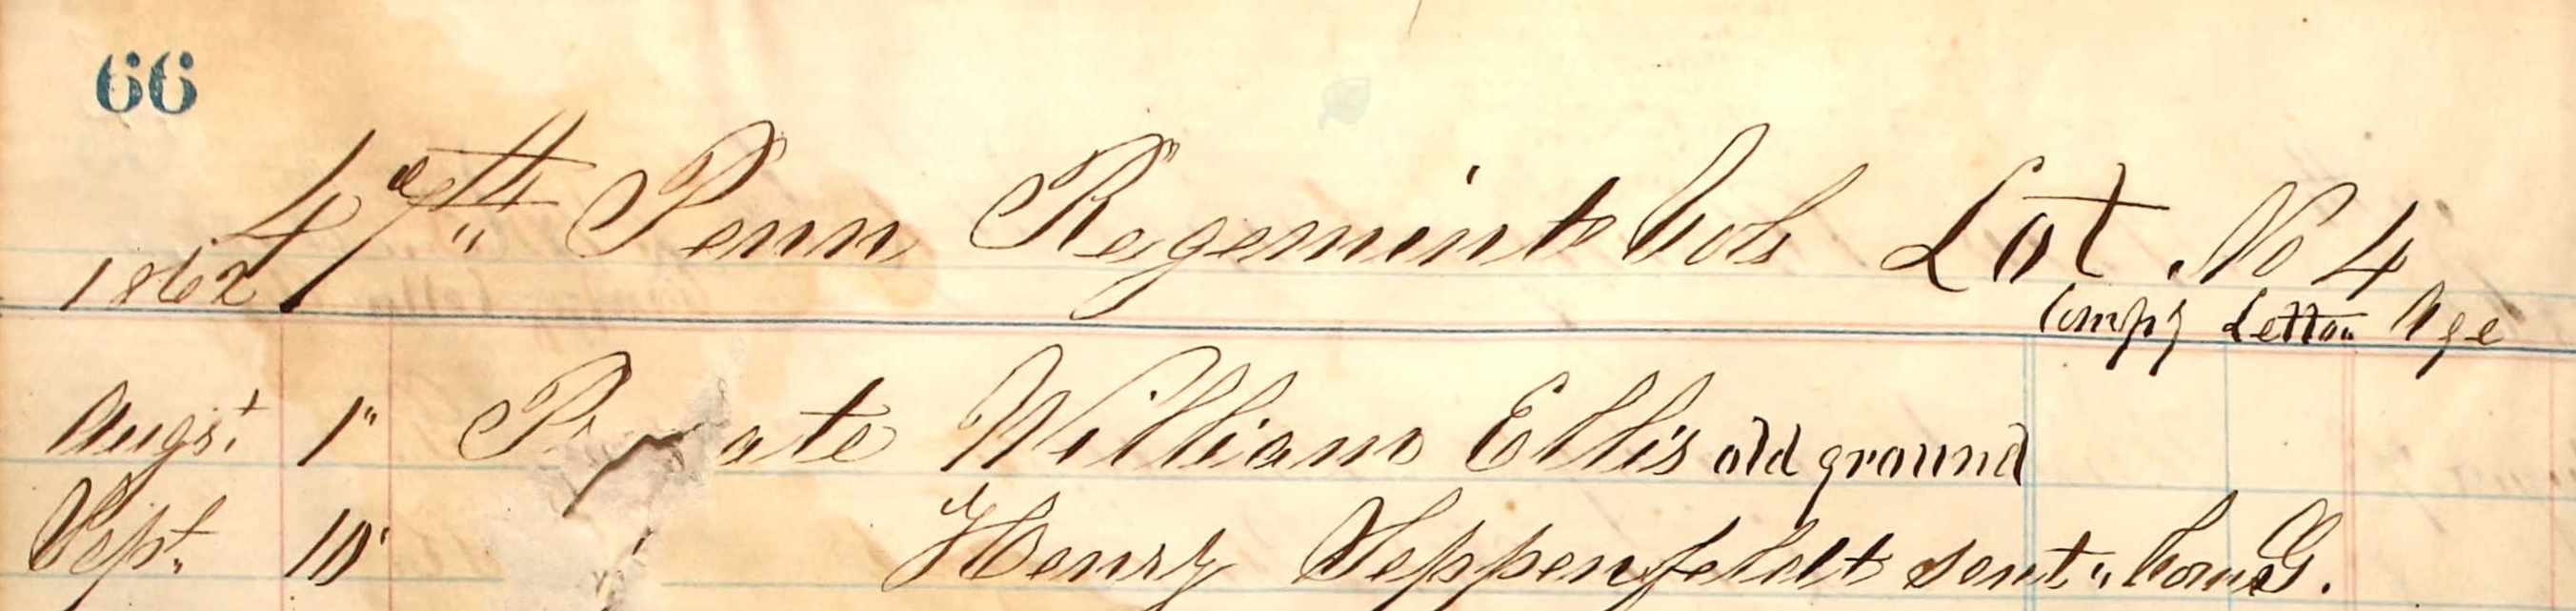 66
47th Penn Regemint Vols Lot No 4
1862 Compy Letter Age
Augst 1" Private William Ellis old ground
Sept. 10 " Henry Seppenfeldt sent home G.